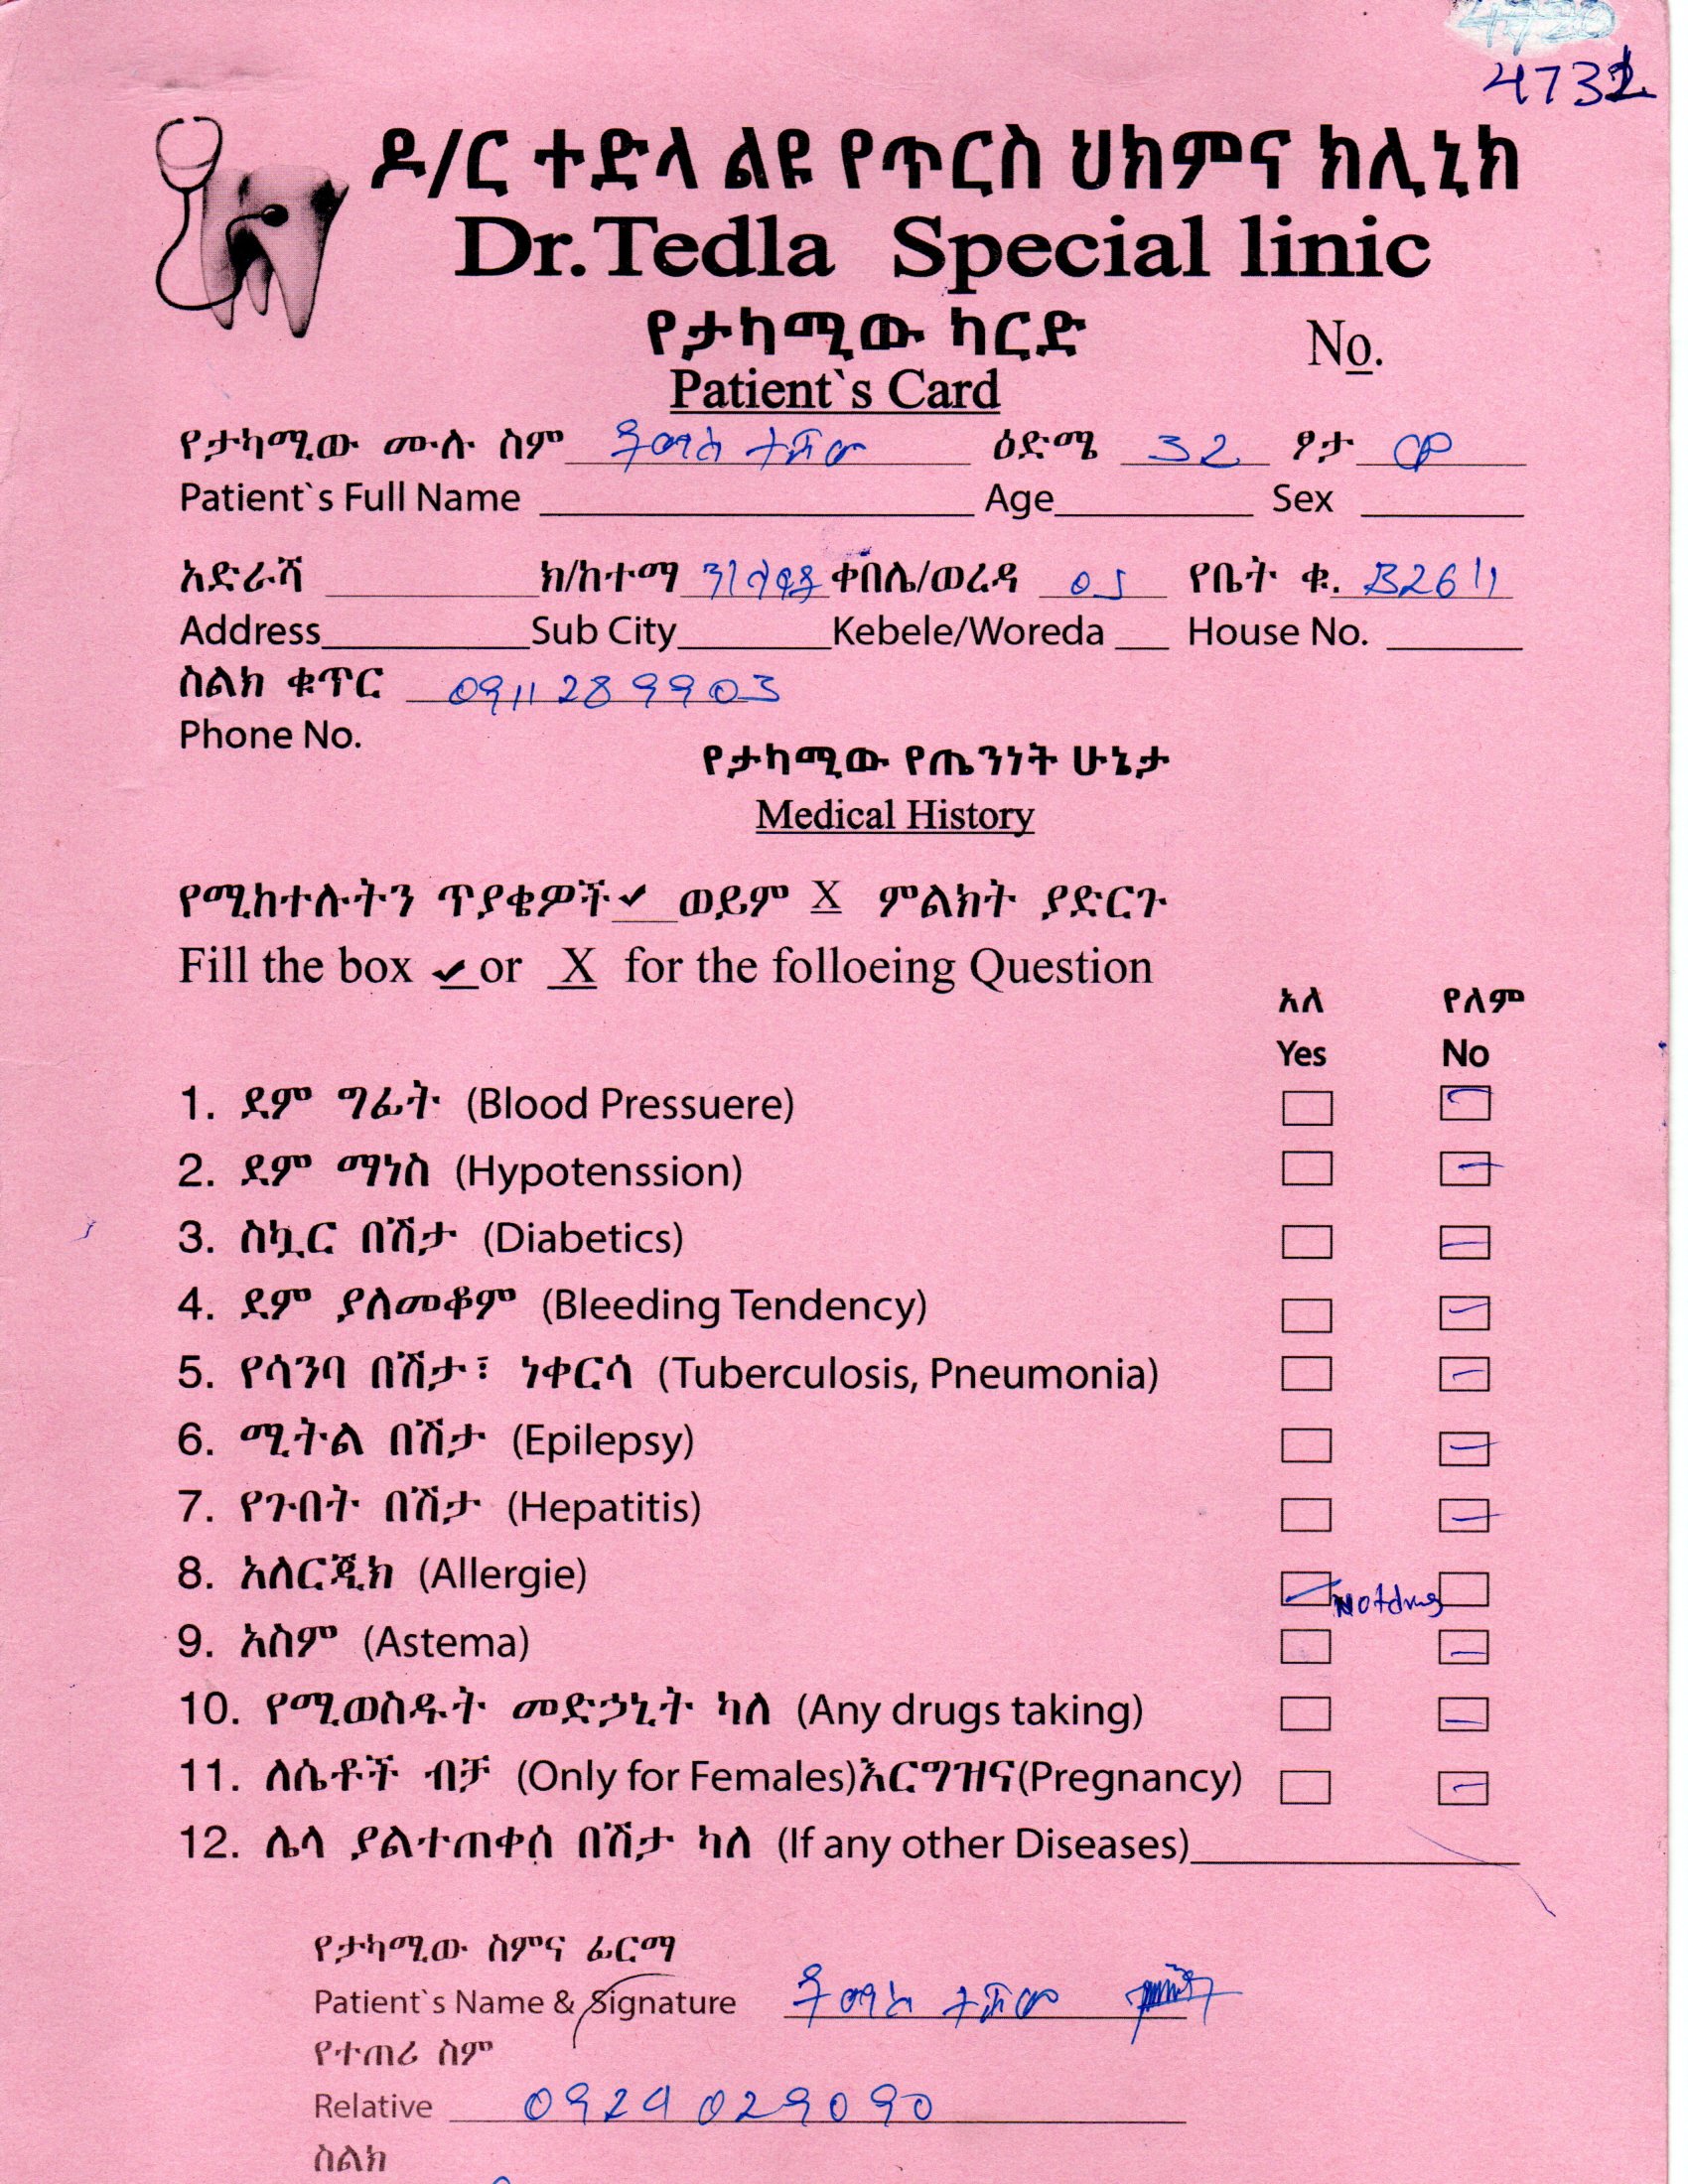 4732
ዶ/ር ተድላ ልዩ የጥርስ ህክምና ክሊኒክ
Dr.Tedla Special linic
የታካሚው ካርድ
No.
Patient`s Card
የታካሚው ሙሉ ስም ቶማስ ተሾመ ዕድሜ 32 ፆታ ወ
Patient`s Full Name Age Sex
አድራሻ ክ/ከተማ ቀበሌ/ወረዳ 05 የቤት ቁ. B2611
Address Sub City Kebele/Woreda House No.
ስልክ ቁጥር 0911289903
Phone No.
የታካሚው የጤንነት ሁኔታ
Medical History
የሚከተሉትን ጥያቄዎች ✓ ወይም X ምልክት ያድርጉ
Fill the box ✓ or X for the folloeing Question
አለ የለም
Yes No
1. ደም ግፊት (Blood Pressuere)
2. ደም ማነስ (Hypotenssion)
3. ስኳር በሽታ (Diabetics)
4. ደም ያለመቆም (Bleeding Tendency)
5. የሳንባ በሽታ፣ ነቀርሳ (Tuberculosis, Pneumonia)
6. ሚትል በሽታ (Epilepsy)
7. የጉበት በሽታ (Hepatitis)
8. አለርጂክ (Allergie) Not drug
9. አስም (Astema)
10. የሚወስዱት መድኃኒት ካለ (Any drugs taking)
11. ለሴቶች ብቻ (Only for Females)እርግዝና(Pregnancy)
12. ሌላ ያልተጠቀሰ በሽታ ካለ (If any other Diseases)
የታካሚው ስምና ፊርማ
Patient`s Name & Signature ቶማስ ተሾመ
የተጠሪ ስም
Relative 0929029090
ስልክ